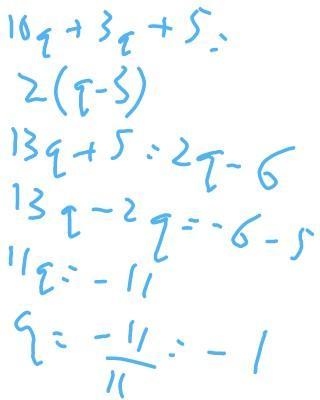 10q + 3q + 5 =
2(q - 3)
13q + 5 = 2q - 6
13q - 2q = -6 - 5
11q = -11
q = -11/11 = -1